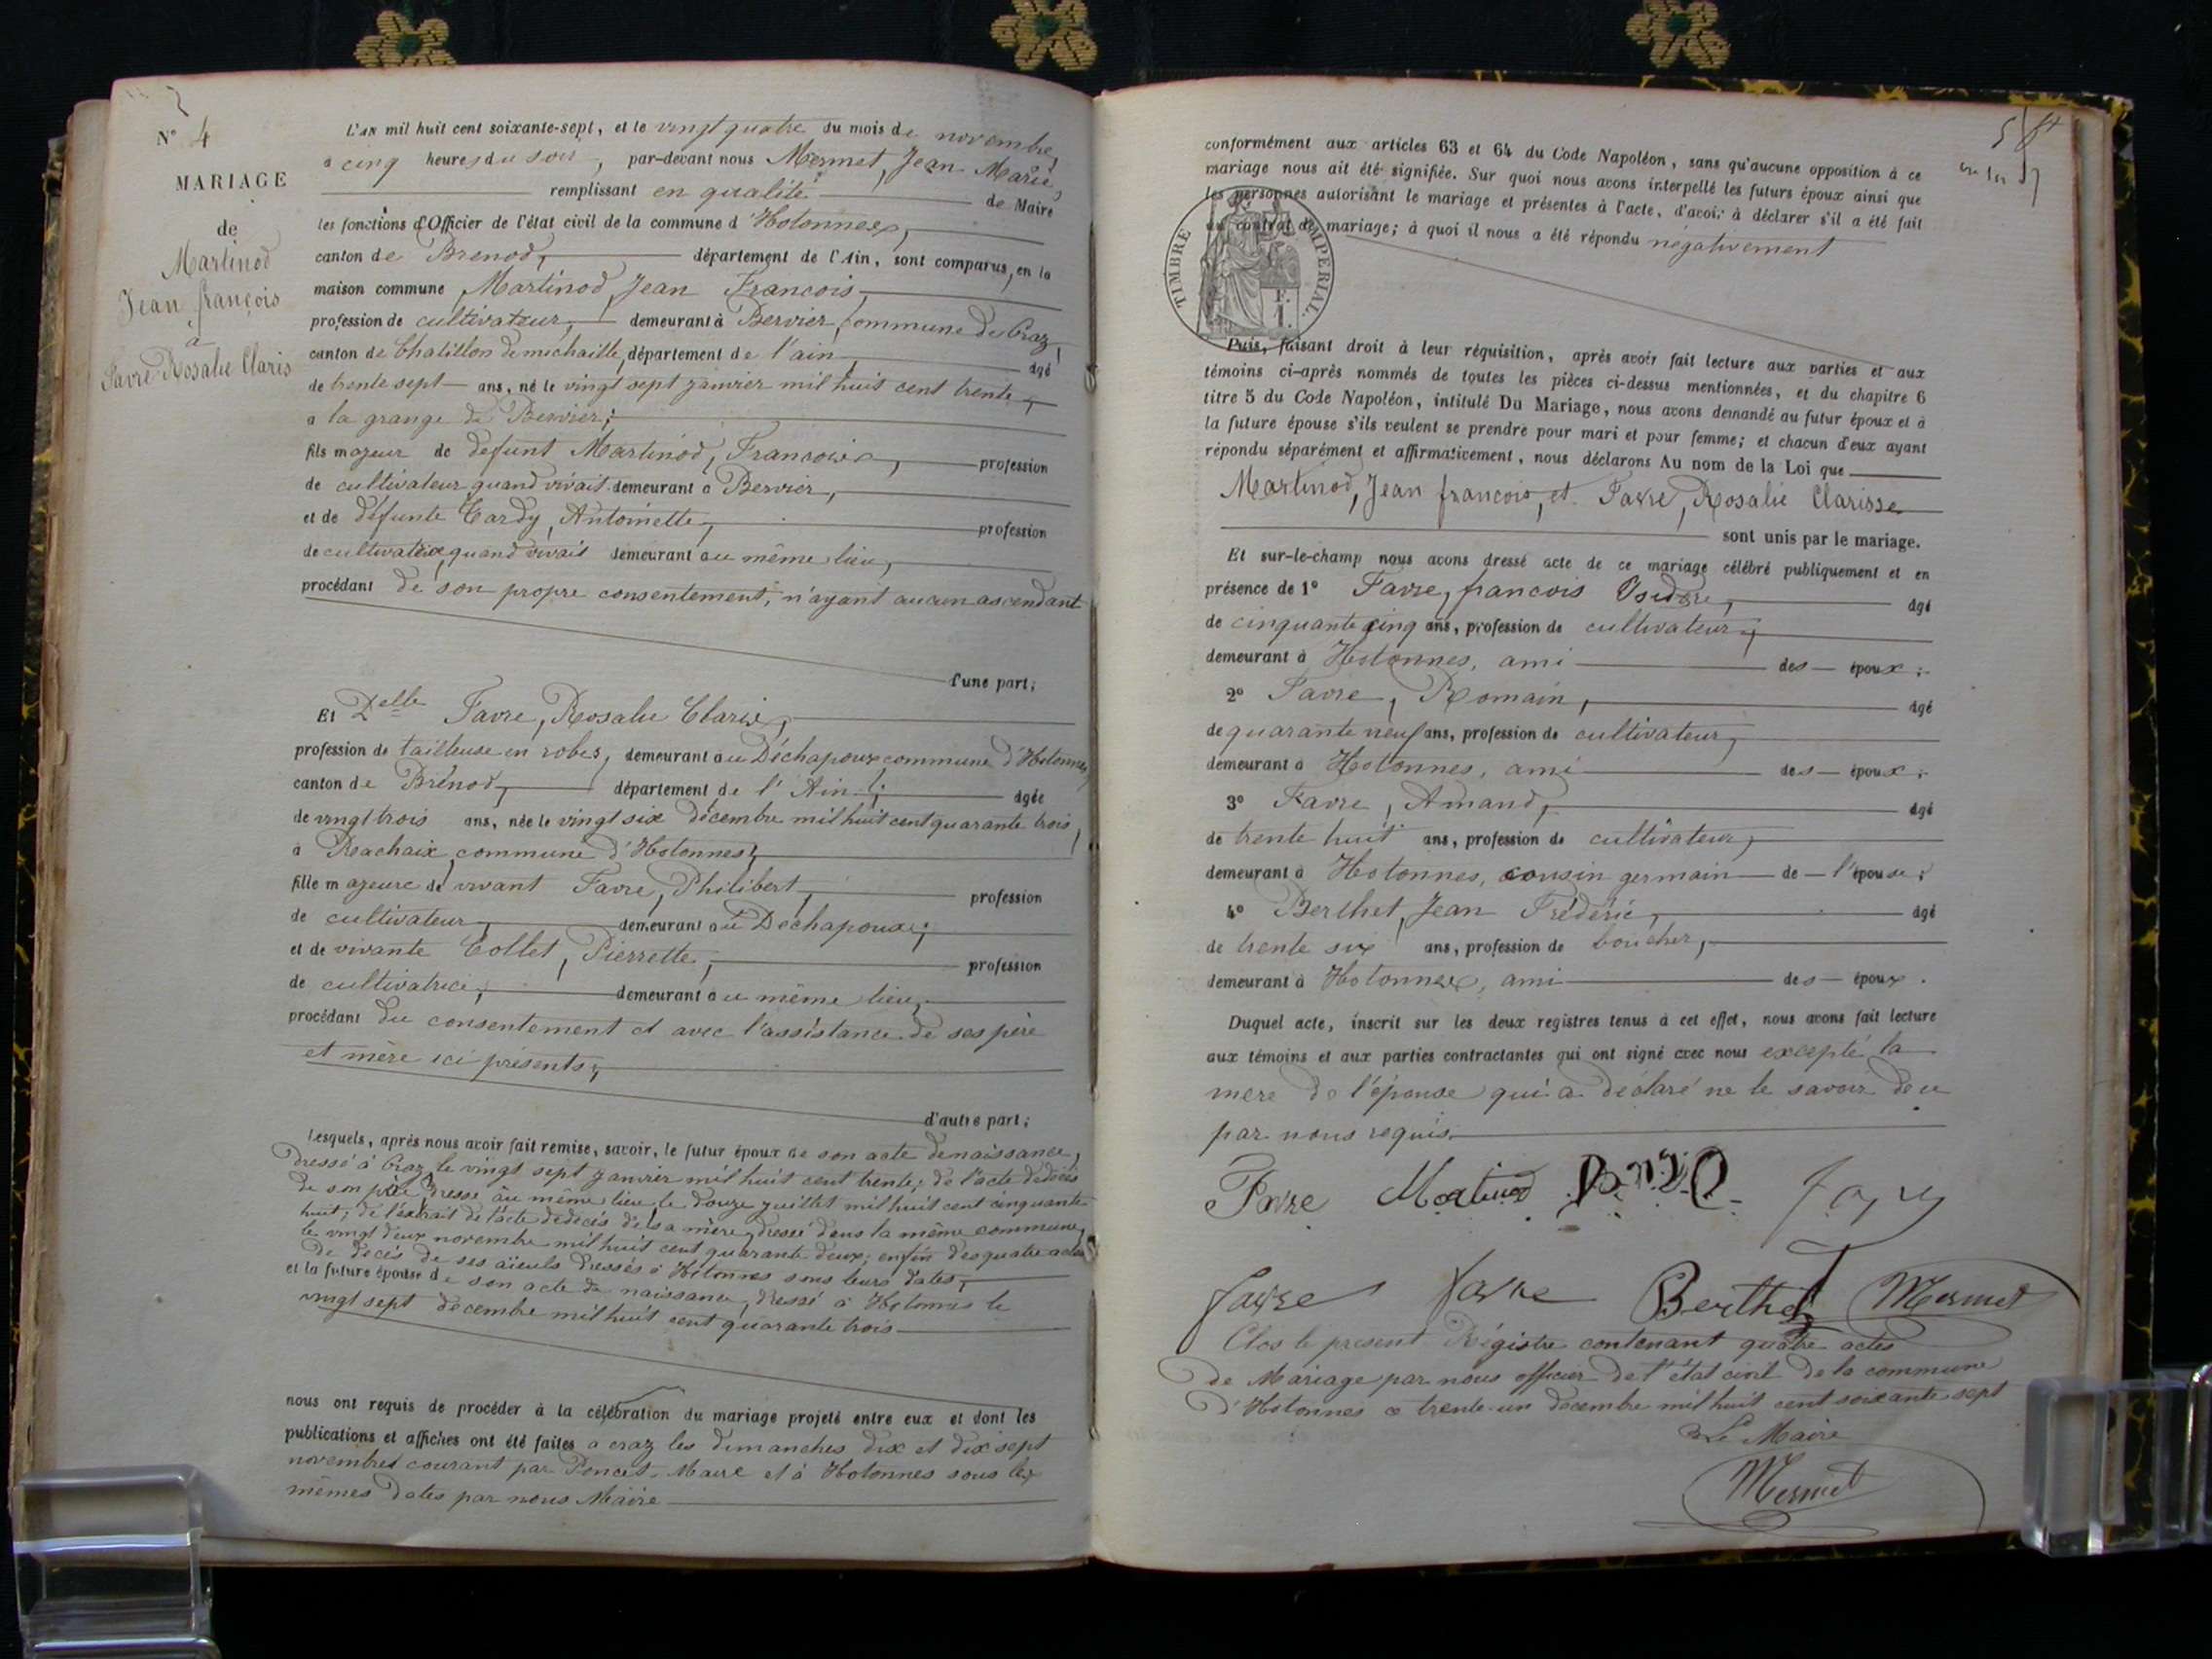 N° 4
MARIAGE
de
Martinod
Jean françois
à
Favre Rosalie Claris
L'an mil huit cent soixante-sept, et le vingt quatre du mois de novembre,
à cinq heures du soir, par-devant nous Mermet, Jean Marie,
remplissant en qualité de Maire
les fonctions d'Officier de l'état civil de la commune d'Hotonnes,
canton de Brenod, département de l'Ain, sont comparus, en la
maison commune, Martinod, Jean Francois,
profession de cultivateur, demeurant à Bervier, commune de Craz,
canton de Chatillon de michaille, département de l'ain, âgé
de trente sept ans, né le vingt sept janvier mil huit cent trente,
à la grange de Bervier;
fils majeur de défunt Martinod, Francois, profession
de cultivateur quand vivait demeurant à Bervier,
et de défunte Tardy, Antoinette, profession
de cultivatrice quand vivait demeurant au même lieu,
procédant de son propre consentement, n'ayant aucun ascendant
d'une part;
Et Delle Favre, Rosalie Claris,
profession de tailleuse en robes, demeurant au Déchapoux commune d'Hotonnes,
canton de Brénod, département de l'Ain; âgée
de vingt trois ans, née le vingt six décembre mil huit cent quarante trois,
à Reachaix, commune d'Hotonnes;
fille majeure de vivant Favre, Philibert, profession
de cultivateur, demeurant au Déchapoux;
et de vivante Collet, Pierrette, profession
de cultivatrice, demeurant au même lieu,
procédant du consentement et avec l'assistance de ses père
et mère ici présents;
d'autre part;
Lesquels, après nous avoir fait remise, savoir, le futur époux de son acte de naissance,
dressé à Craz, le vingt sept janvier mil huit cent trente; de l'acte de décès
de son père, dressé au même lieu, le douze juillet mil huit cent cinquante
huit; de l'extrait de l'acte de décès de sa mère, dressé dans la même commune,
le vingt deux novembre mil huit cent quarante deux; enfin des quatre actes
de décès de ses aïeuls dressés à Hotonnes sous leurs dates,
et la future épouse de son acte de naissance, dressé à Hotonnes le
vingt sept décembre mil huit cent quarante trois
nous ont requis de procéder à la célébration du mariage projeté entre eux et dont les
publications et affiches ont été faites à craz les dimanches dix et dix sept
novembre courant par Poncet, Maire et à Hotonnes sous les
mêmes dates par nous Maire
conformément aux articles 63 et 64 du Code Napoléon, sans qu'aucune opposition à ce
mariage nous ait été signifiée. Sur quoi nous avons interpellé les futurs époux ainsi que
les personnes autorisant le mariage et présentes à l'acte, d'avoir à déclarer s'il a été fait
un contrat de mariage; à quoi il nous a été répondu négativement
TIMBRE IMPERIAL.
Puis, faisant droit à leur réquisition, après avoir fait lecture aux parties et aux
témoins ci-après nommés de toutes les pièces ci-dessus mentionnées, et du chapitre 6
titre 5 du Code Napoléon, intitulé Du Mariage, nous avons demandé au futur époux et à
la future épouse s'ils veulent se prendre pour mari et pour femme; et chacun d'eux ayant
répondu séparément et affirmativement, nous déclarons Au nom de la Loi que
Martinod, Jean francois, et Favre, Rosalie Clarisse
sont unis par le mariage.
Et sur-le-champ nous avons dressé acte de ce mariage célébré publiquement et en
présence de 1° Favre, francois Isidore, âgé
de cinquante cinq ans, profession de cultivateur,
demeurant à Hotonnes, ami des époux;
2° Favre, Romain, âgé
de quarante neuf ans, profession de cultivateur,
demeurant à Hotonnes, ami des époux;
3° Favre, Amand, âgé
de trente huit ans, profession de cultivateur,
demeurant à Hotonnes, cousin germain de l'épouse;
4° Berthet, Jean Frédéric, âgé
de trente six ans, profession de boucher,
demeurant à Hotonnes, ami des époux.
Duquel acte, inscrit sur les deux registres tenus à cet effet, nous avons fait lecture
aux témoins et aux parties contractantes qui ont signé avec nous excepté la
mere de l'épouse qui a déclaré ne le savoir de ce
par nous requis.
Favre Martinod
favre favre Berthet Mermet
Clos le present Régistre contenant quatre actes
de Mariage par nous officier de l'état civil de la commune
d'Hotonnes ce trente un décembre mil huit cent soixante sept
Le Maire
Mermet